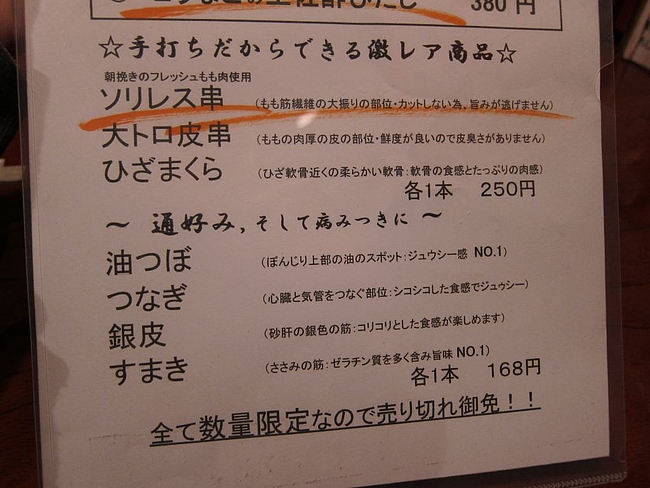 380円
☆手打ちだからできる激レア商品☆
朝挽きのフレッシュもも肉使用
ソリレス串 (もも筋繊維の大振りの部位・カットしない為、旨みが逃げません)
大トロ皮串 (ももの肉厚の皮の部位・鮮度が良いので皮臭さがありません)
ひざまくら (ひざ軟骨近くの柔らかい軟骨:軟骨の食感とたっぷりの肉感)
各1本 250円
～ 通好み,そして病みつきに ～
油つぼ (ぼんじり上部の油のスポット:ジュウシー感 NO.1)
つなぎ (心臓と気管をつなぐ部位:シコシコした食感でジュゥシー)
銀皮 (砂肝の銀色の筋:コリコリとした食感が楽しめます)
すまき (ささみの筋:ゼラチン質を多く含み旨味 NO.1)
各1本 168円
全て数量限定なので売り切れ御免！！